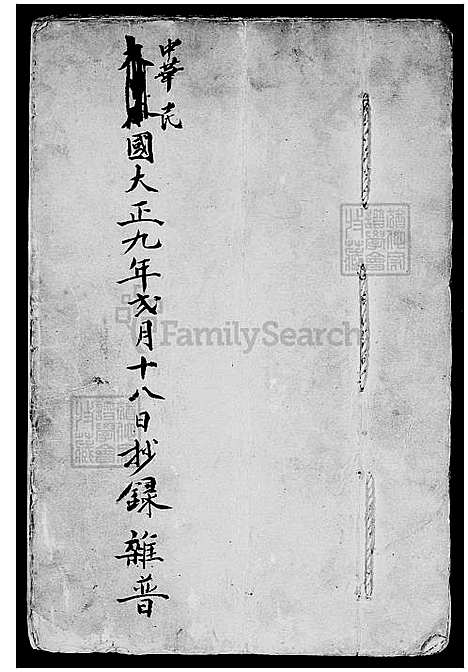 中華民
國大正九年弍月十八日抄録雜普
FamilySearch